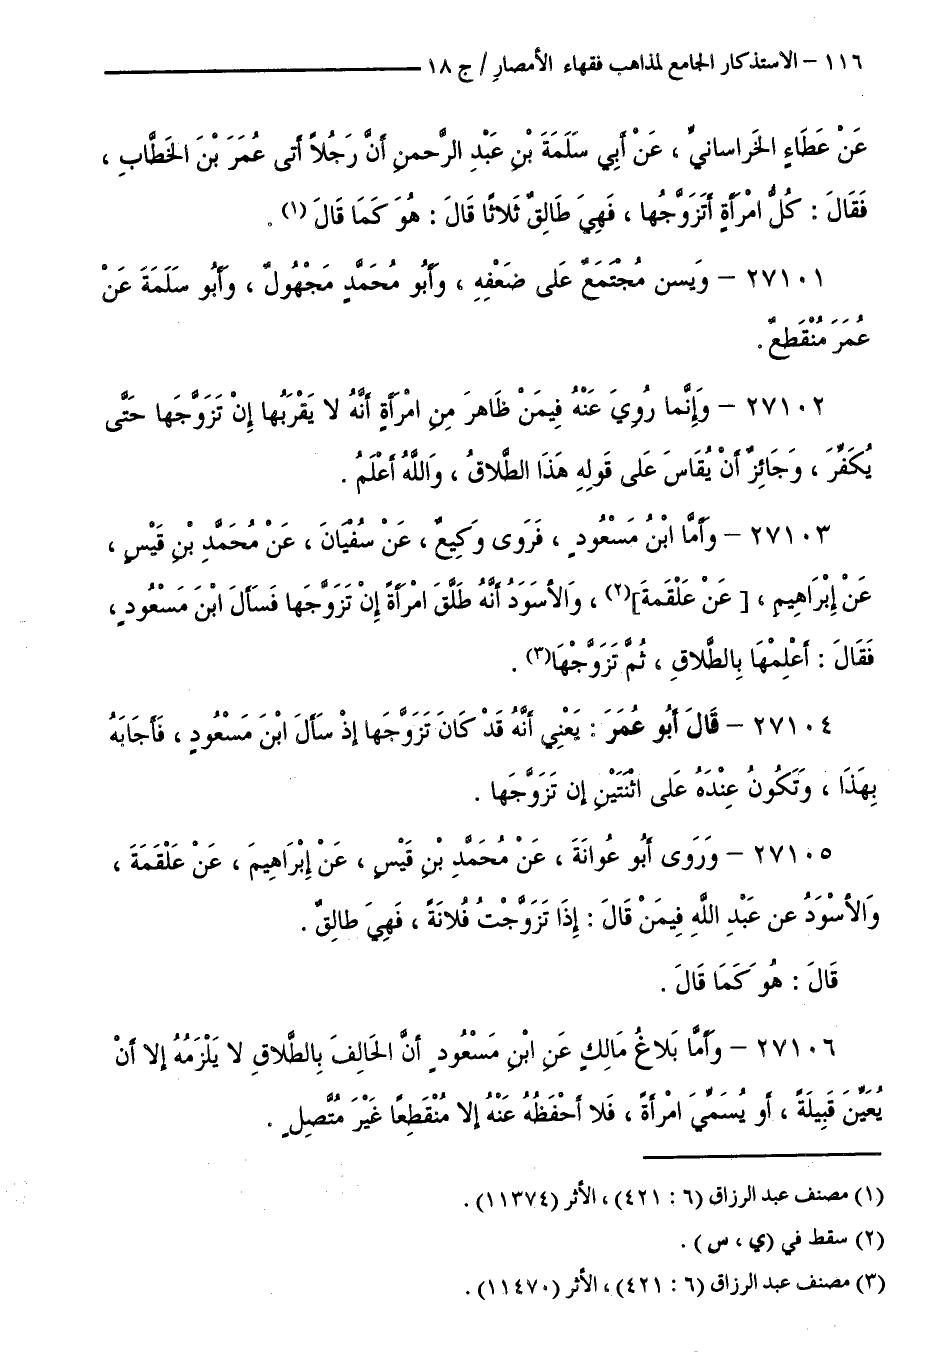 ١١٦ – الاستذكار الجامع لمذاهب فقهاء الأمصارِ / ج ١٨
عَنْ عَطَاءٍ الخَراسانيِّ ، عَنْ أَبِي سَلَمَةَ بْنِ عَبْدِ الرَّحمنِ أَنَّ رَجُلاً أتى عُمَرَ بْنَ الخطَّابِ ،
فَقَالَ : كُلُّ امْرَأَةٍ أتَزَوَّجُها ، فَهِيَ طَالِقٌ ثَلاثًا قَالَ : هُوَ كَمَا قَالَ (١) .
٢٧١٠١ – وَيَسن مُجْتَمَعٌ عَلى ضَعْفِهِ ، وَأَبُو مُحَمَّدٍ مَجْهُولٌ ، وَأَبُو سَلَمَةَ عَنْ
عُمَرَ مُنْقَطعٌ .
٢٧١٠٢ – وَإِنَّما رُوِيَ عَنْهُ فِيمَنْ ظَاهرَ مِنِ امْرَأَةٍ أنَّهُ لا يَقْرَبُها إِنْ تَزَوَّجَها حَتَّى
يُكَفِّرَ ، وَجَائِزٌ أنْ يُقَاسَ عَلى قَولِهِ هَذَا الطَّلاقُ ، وَاللَّهُ أعْلَمُ .
٢٧١٠٣ – وَأَمَّا ابْنُ مَسْعُودٍ ، فَرَوى وَكِيعٌ ، عَنْ سُفْيَانَ ، عَنْ مُحَمَّدِ بْنِ قَيْسٍ ،
عَنْ إِبْرَاهِيمِ ، [ عَنْ عَلْقَمةَ ](٢) ، وَالأسوَدُ أنَّهُ طَلَّقَ امْرأةً إِنْ تَزَوَّجَها فَسَألَ ابْنَ مَسْعُودٍ ،
فَقَالَ : أعْلِمْهَا بِالطَّلاقِ ، ثُمَّ تَزَوَّجْهَا(٣) .
٢٧١٠٤ – قَالَ أَبُو عُمَرَ : يَعْنِي أنَّهُ قَدْ كَانَ تَزَوَّجَها إِذْ سَألَ ابْنَ مَسْعُودٍ ، فَأجَابَهُ
بِهَذَا ، وَتَكُونُ عِنْدَهُ عَلى اثْنَتَيْنِ إِن تَزَوَّجَها .
٢٧١٠٥ – وَرَوى أَبُو عُوانَةَ ، عَنْ مُحَمَّدِ بْنِ قَيْسٍ ، عَنْ إِبْرَاهِيمَ ، عَنْ عَلْقَمَةَ ،
وَالأسْوَدُ عن عَبْدِ اللَّهِ فِيمَنْ قَالَ : إِذَا تَزَوَّجْتُ فُلانَةً ، فَهِيَ طالِقٌ .
قَالَ : هُوَ كَمَا قَالَ .
٢٧١٠٦ – وَأَمَّا بَلاغُ مَالِكٍ عَنِ ابْنِ مَسْعُودٍ أنَّ الحَالِفَ بِالطَّلاقِ لا يَلْزَمُهُ إلا أنْ
يُعَيِّنَ قَبِيلَةً ، أو يُسَمِّيَ امْرأةً ، فَلا أحْفَظُهُ عَنْهُ إلا مُنْقَطِعًا غَيْرَ مُتَّصِلٍ .
(١) مصنف عبد الرزاق (٦ : ٤٢١) ، الأثر (١١٣٧٤) .
(٢) سقط في (ي ، س ) .
(٣) مصنف عبد الرزاق (٦ : ٤٢١) ، الأثر (١١٤٧٠) .